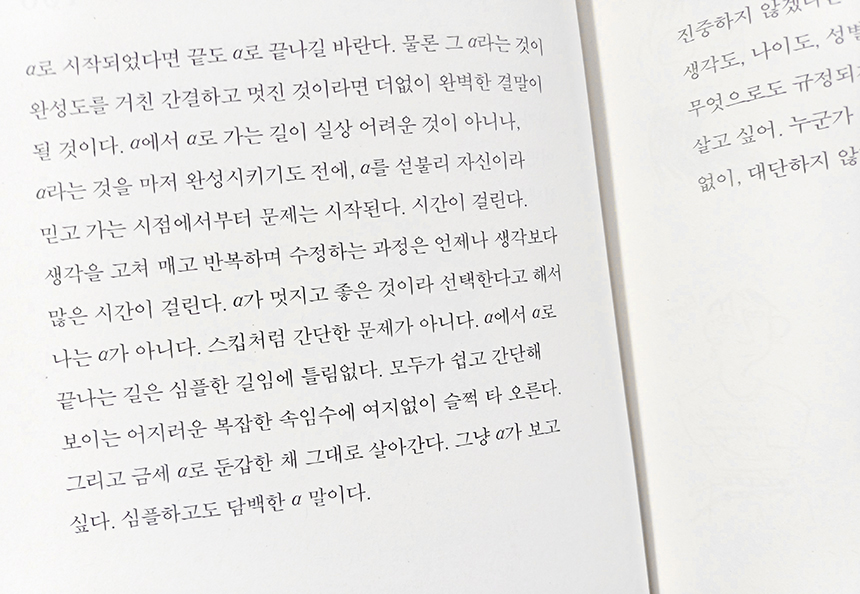 a로 시작되었다면 끝도 a로 끝나길 바란다. 물론 그 a라는 것이
완성도를 거친 간결하고 멋진 것이라면 더없이 완벽한 결말이
될 것이다. a에서 a로 가는 길이 실상 어려운 것이 아니나,
a라는 것을 마저 완성시키기도 전에, a를 섣불리 자신이라
믿고 가는 시점에서부터 문제는 시작된다. 시간이 걸린다.
생각을 고쳐 매고 반복하며 수정하는 과정은 언제나 생각보다
많은 시간이 걸린다. a가 멋지고 좋은 것이라 선택한다고 해서
나는 a가 아니다. 스킵처럼 간단한 문제가 아니다. a에서 a로
끝나는 길은 심플한 길임에 틀림없다. 모두가 쉽고 간단해
보이는 어지러운 복잡한 속임수에 여지없이 슬쩍 타 오른다.
그리고 금세 a로 둔갑한 채 그대로 살아간다. 그냥 a가 보고
싶다. 심플하고도 담백한 a 말이다.
진중하지 않겠다는
생각도, 나이도, 성별
무엇으로도 규정되
살고 싶어. 누군가
없이, 대단하지 않